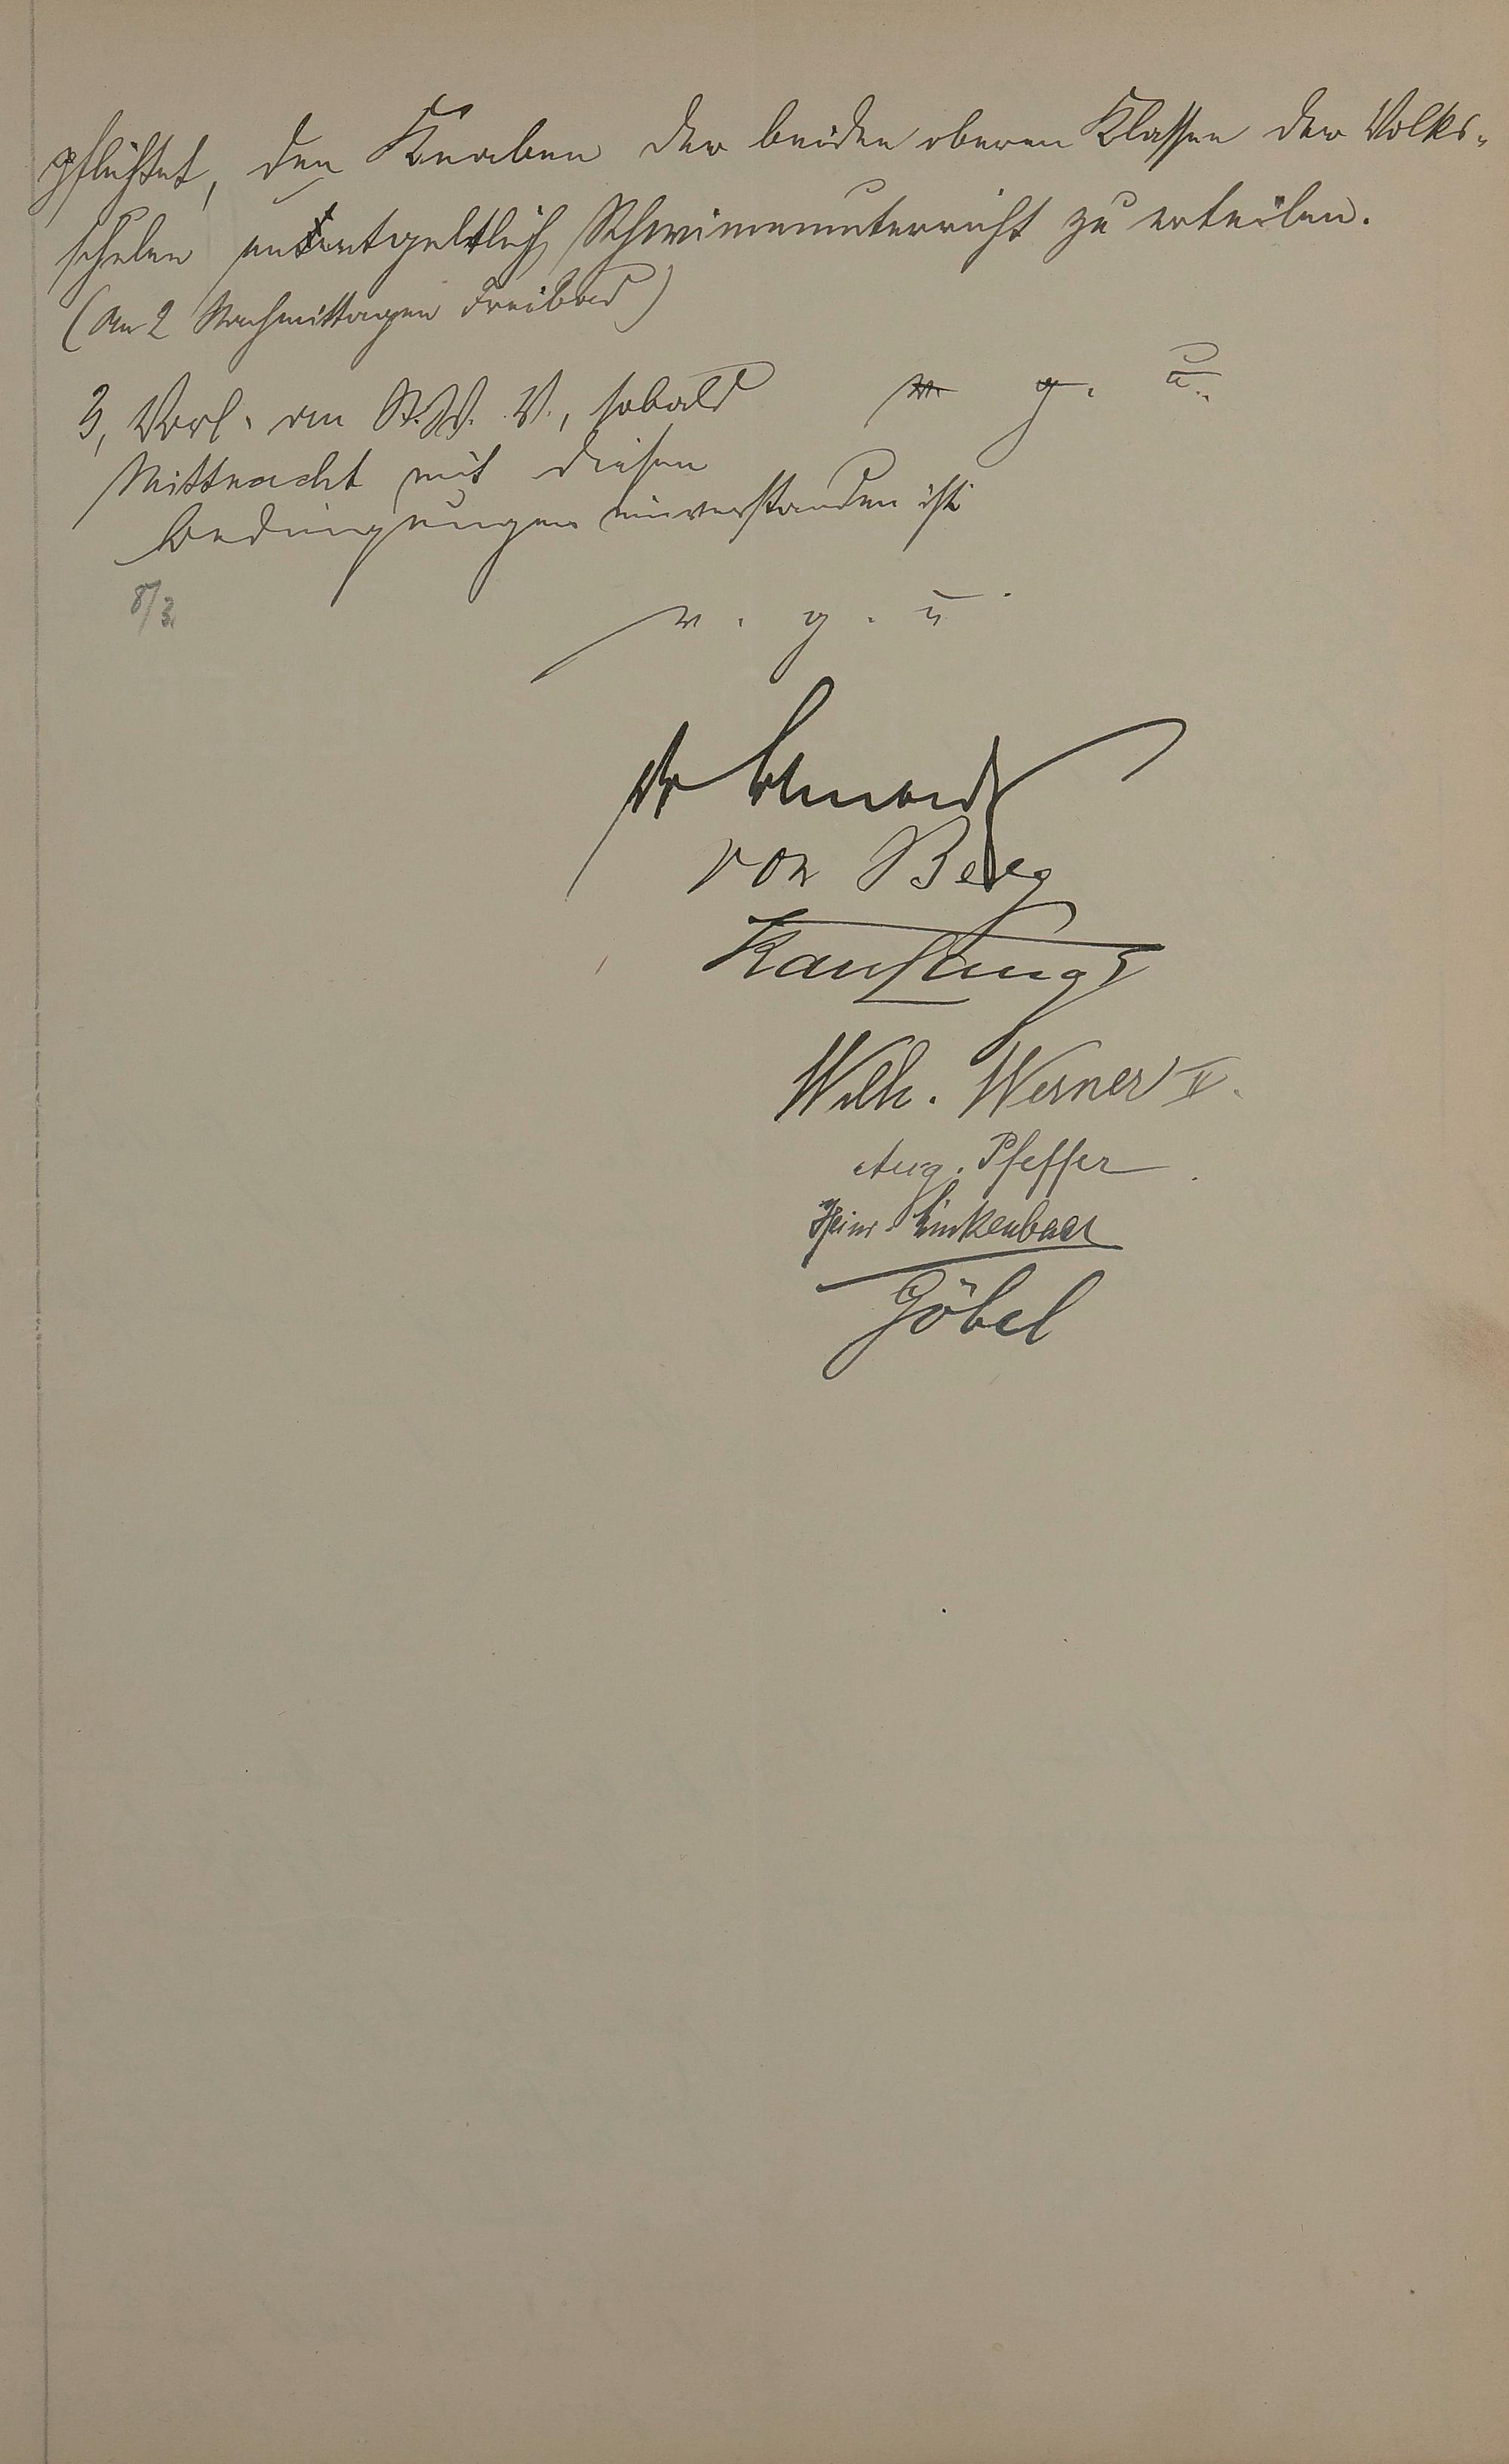 pflichtet, den Knaben der beiden oberen Klassen der Volks-
schulen unentgeltlich Schwimmunterricht zu erteilen.
(An 2 Nachmittagen Freibad)
3, Vorl. an St. V. V., sobald v. g. u.
Mittnacht mit diesen
Bedingungen einverstanden ist
8/3.
v. g. u.
Dr
von Berg
Wilh. Werner II.
Aug. Pfeffer
Heinr. Linkenbach
Göbel